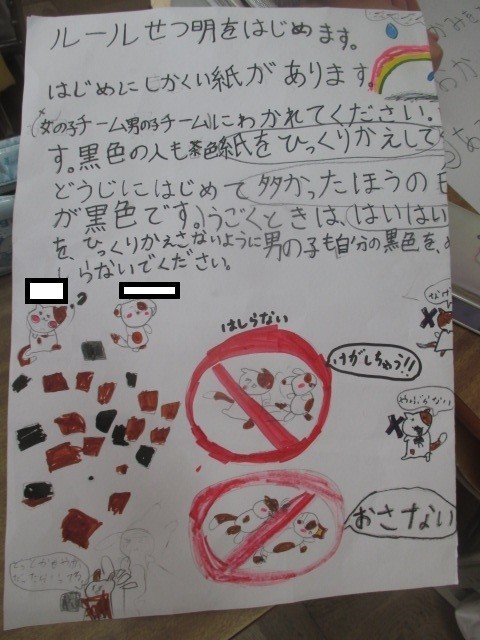 ルールせつ明をはじめます。
はじめにしかくい紙があります。
(女の子チーム男の子チーム)にわかれてください。
す。黒色の人も茶色紙をひっくりかえして
どうじにはじめて多かったほうの
が黒色です。)うごくときは、(はいはい
を、ひっくりかえさないように男の子も自分の黒色を、
しらないでください。
はしらない
けがしちゃう!!
やぶかない
おさない